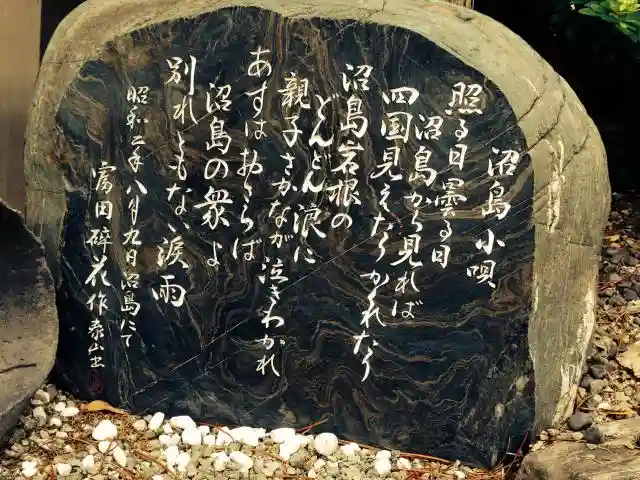 沼島小唄
照る日曇る日
沼島から見れば
四国見えたりかれたり
沼島岩根の
どんどん浪に
親子さかなが泣きわかれ
あすはおさらば
沼島の衆よ
別れともない涙雨
昭和二年八月九日沼島にて
富田砕花作